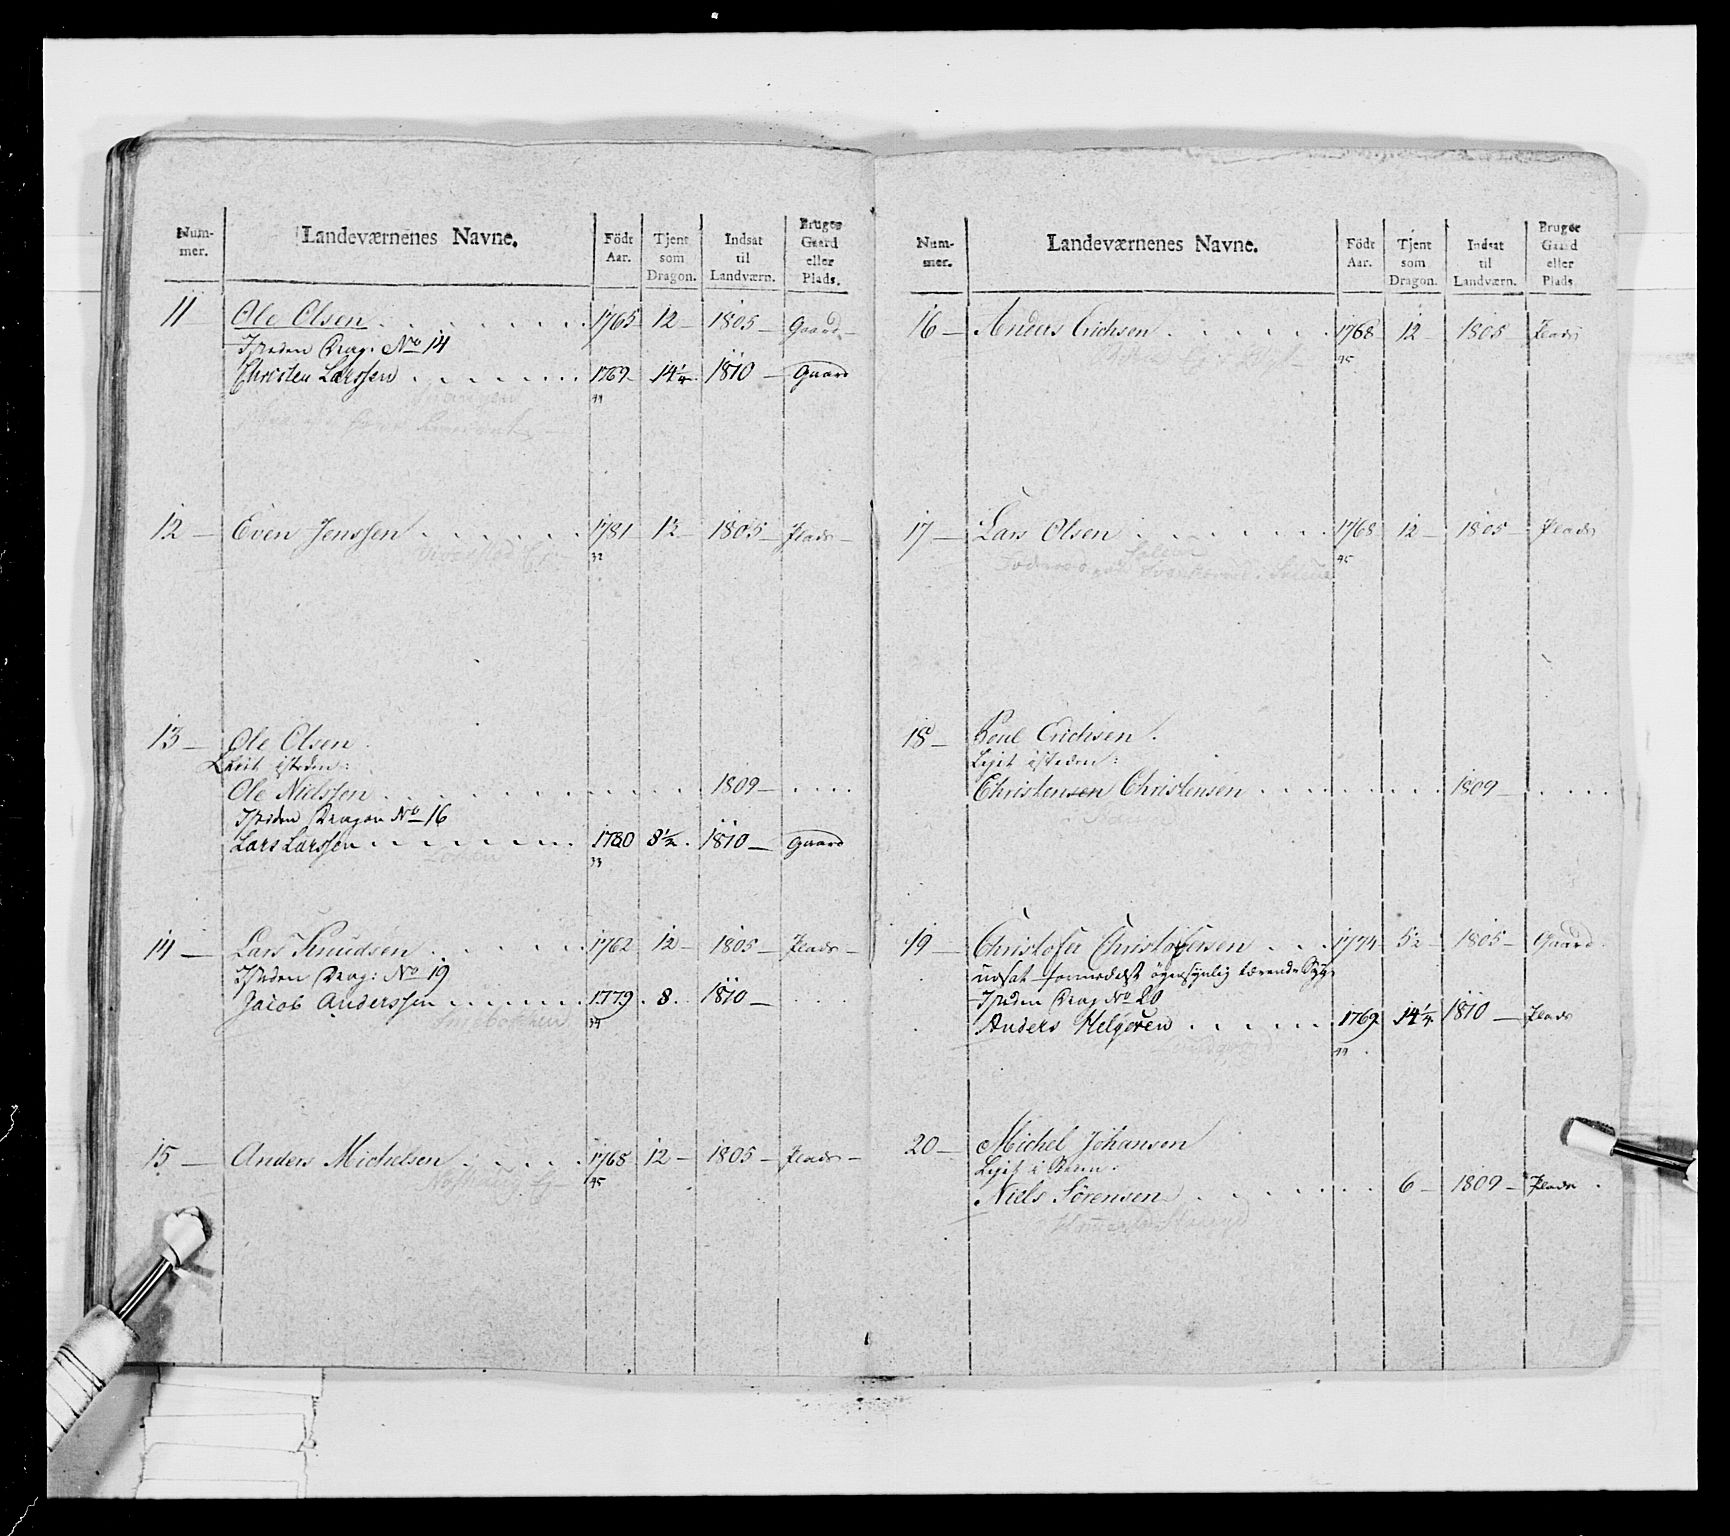 Num-
mer.
Landeværnenes Navne.
Födt
Aar.
Tjent
som
Dragon.
Indsat
til
Landværn.
Bruger
Gaard
eller
Plads.
11 Ole Olsen . . . . . . . . 1765 12 — 1805 — Gaard —
Isteden Drag: No 14
Christen Larssen . . . . . . . 1769 — 14¼ — 1810 — Gaard
44
12 — Even Jenssen . . . . . . 1781 12 — 1805 — Plads —
32
13 — Ole Olsen.
Leit isteden:
Ole Nielssen . . . . . . . . . . . 1809 — . . . .
Isteden Dragon No 16
Lars Larssen . . . . . . . . 1780 8½ . 1810 — Gaard
33
14 — Lars Knudsen . . . . . . . 1762 12 — 1805 — Plads —
Isteden Drag: No 19
Jacob Anderssen . . . . . . 1779 . 8 . 1810 — . . .
34
15 — Anders Michelsen . . . . . 1768 12 — 1805 — Plads —
45
Num-
mer.
Landeværnenes Navne.
Födt
Aar.
Tjent
som
Dragon.
Indsat
til
Landværn.
Bruger
Gaard
eller
Plads.
16 — Anders Erichsen . . . . . . 1768 12 — 1805 — Plads
45
17 — Lars Olsen . . . . . . . . 1768 12 — 1805 — Plads
45
18 — Poul Erichsen.
Lejet isteden:
Christensen Christensen . . . . . . . . 1809 — . . . . .
19 — Christofer Christofersen . . . 1774 5½ — 1805 — Gaard.
udsat formedelst öyensynlig tærende Syge
Isteden Drag No 20
Anders Helgesen . . . . . . 1769 14¼ 1810 — Plads
44
20 — Michel Johansen
Lejet i
Niels Sörensen . . . . . . . . 6 — 1809 — Plads .